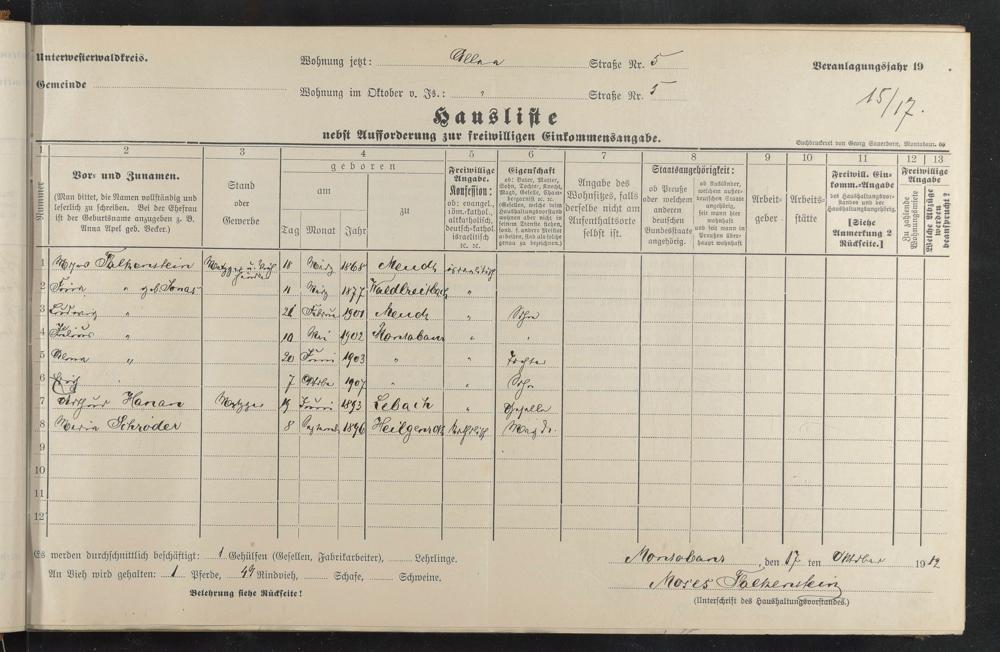 Unterwesterwaldkreis.
Wohnung jetzt: Allee Straße Nr. 5
Veranlagungsjahr 19
Gemeinde
Wohnung im Oktober v. Js.: " Straße Nr. 5
15/17.
Hausliste
nebst Aufforderung zur freiwilligen Einkommensangabe.
Buchdruckerei von Georg Sauerborn, Montabaur.
1 2 3 4 5 6 7 8 9 10 11 12 13
Nummer
Vor- und Zunamen.
(Man bittet, die Namen vollständig und
leserlich zu schreiben. Bei der Ehefrau
ist der Geburtsname anzugeben z. B.
Anna Apel geb. Becker.)
Stand
oder
Gewerbe
geboren
am
zu
Tag Monat Jahr
Freiwillige
Angabe.
Konfession:
ob: evangel.,
röm.-kathol.,
altkatholisch,
deutsch-kathol.
israelitisch
ꝛc. ꝛc.
Eigenschaft
ob: Vater, Mutter,
Sohn, Tochter, Knecht,
Magd, Geselle, Cham-
bergarnist ꝛc. ꝛc.
(Gesellen, welche beim
Haushaltungsvorstand
wohnen aber nicht in
seinem Dienste stehen,
sond. f. andere Meister
arbeiten, sind als solche
genau zu bezeichnen.)
Angabe des
Wohnsitzes, falls
derselbe nicht am
Aufenthaltsorte
selbst ist.
Staatsangehörigkeit:
ob Preuße
oder welchem
anderen
deutschen
Bundesstaate
angehörig.
ob Ausländer,
welchem außer-
deutschen Staate
angehörig,
seit wann hier
wohnhaft und
seit wann in
Preußen über-
haupt wohnhaft
Arbeit-
geber
Arbeits-
stätte
Freiwill. Ein-
komm.-Angabe
des Haushaltungsvor-
standes und der
Haushaltungsangehörig.
[Siehe
Anmerkung 2
Rückseite.]
Freiwillige
Angabe
Zu zahlende
Wohnungsmiete
Welche Abzüge
werden
beansprucht?
1 Moses Falkenstein Metzger u. Viehhändler 18 März 1868 Meudt israelitisch
2 " geb. Jonas 11 März 1877 Waldbreitbach "
3 Ludwig " 21 Februar 1901 Meudt " Sohn
4 Julius " 10 Mai 1902 Montabaur " "
5 " 20 Juni 1903 " " Tochter
6 7 Oktober 1907 " " Sohn
7 Arthur Hanau Metzger 19 Juni 1893 Lebach " Geselle
8 Maria Schröder 8 September 1896 Heilgenroth katholisch Magd
9
10
11
12
Es werden durchschnittlich beschäftigt: 1 Gehülfen (Gesellen, Fabrikarbeiter), Lehrlinge.
An Vieh wird gehalten: 1 Pferde, Rindvieh, Schafe, Schweine.
Belehrung siehe Rückseite!
Montabaur, den 17 ten Oktober 1912
Moses Falkenstein
(Unterschrift des Haushaltungsvorstandes.)